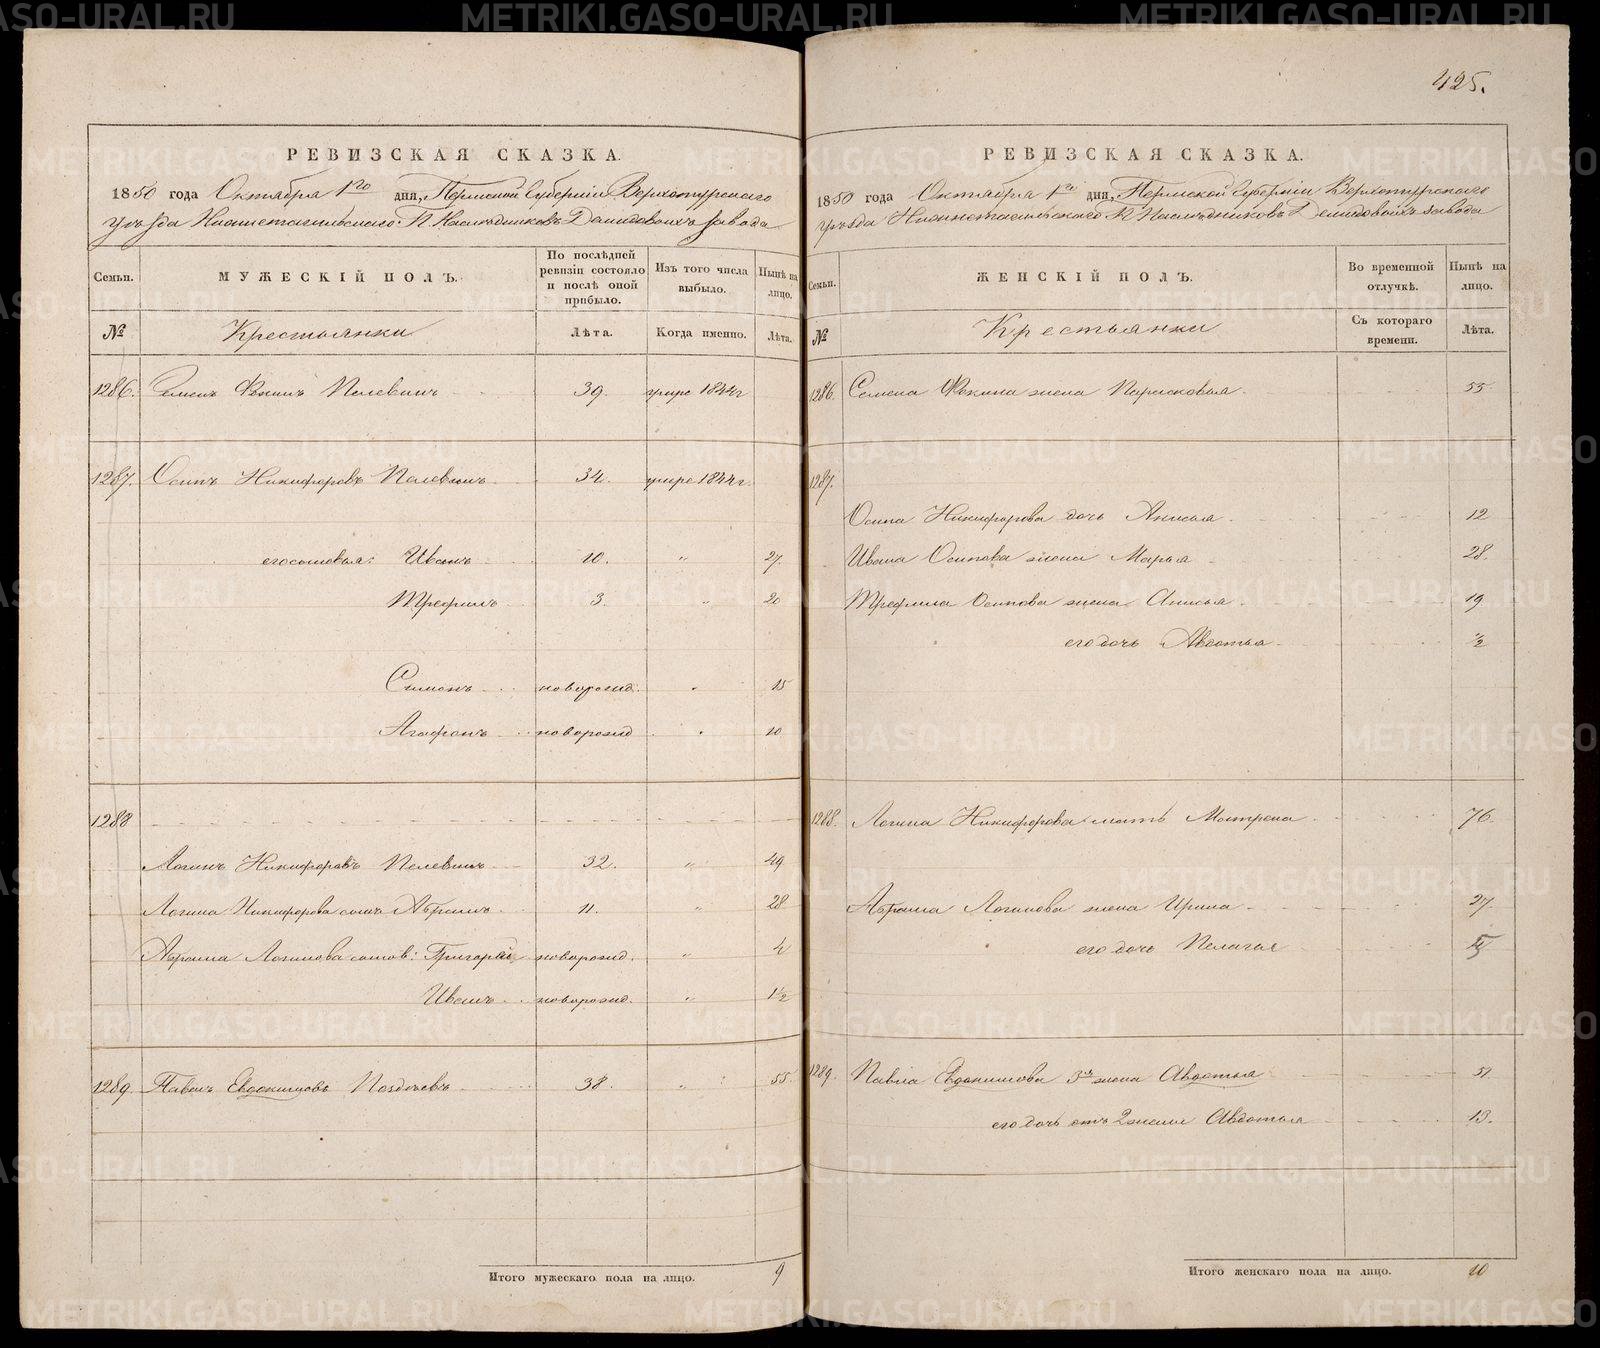 425.
РЕВИЗСКАЯ СКАЗКА.
1850 года Октября 1го дня, Пермской Губернiи Верхотурскаго
уѣзда Нижнетагильскаго П. Наслѣдниковъ Демидовыхъ завода
Семьи. МУЖЕСКIЙ ПОЛЪ. По послѣдней ревизiи состояло и послѣ оной прибыло. Изъ того числа выбыло. Нынѣ на лицо.
№ Крестьянки Лѣта. Когда именно. Лѣта.
1286. Семенъ Фокинъ Пелевинъ 39. умре 1844г
1287. Осипъ Никифоровъ Пелевинъ 34. умре 1844г.
его сыновья: Иванъ 10. " 27.
Трефилъ 3. " 20
Симонъ новорожд. " 15
Агафонъ новорожд " 10
1288
Логинъ Никифоровъ Пелевинъ 32. " 49
Логина Никифорова сынъ Абрамъ 11. " 28
Абрама Логинова сынов: Григорiй новорожд. " 4
Иванъ новорожд. " 1½
1289. Павелъ Евдокимовъ Поздѣевъ 38. " 55.
Итого мужескаго пола на лицо. 9
РЕВИЗСКАЯ СКАЗКА.
1850 года Октября 1го дня, Пермской Губернiи Верхотурскаго
уѣзда Нижнетагильскаго П. Наслѣдниковъ Демидовыхъ завода
Семьи. ЖЕНСКIЙ ПОЛЪ. Во временной отлучкѣ. Нынѣ на лицо.
№ Крестьянки Съ котораго времени. Лѣта.
1286. Семена Фокина жена Парасковья 55.
1287.
Осипа Никифорова дочь Анисья 12
Ивана Осипова жена Марья 28.
Трефила Осипова жена Анисья 19
его дочь Авдотья ½
1288. Логина Никифорова мать Матрена 76.
Абрама Логинова жена Ирина 27.
его дочь Пелагея
1289. Павла Евдокимова 3я жена Авдотья 51
его дочь отъ 2 жены Авдотья 13.
Итого женскаго пола на лицо. 10
METRIKI.GASO-URAL.RU